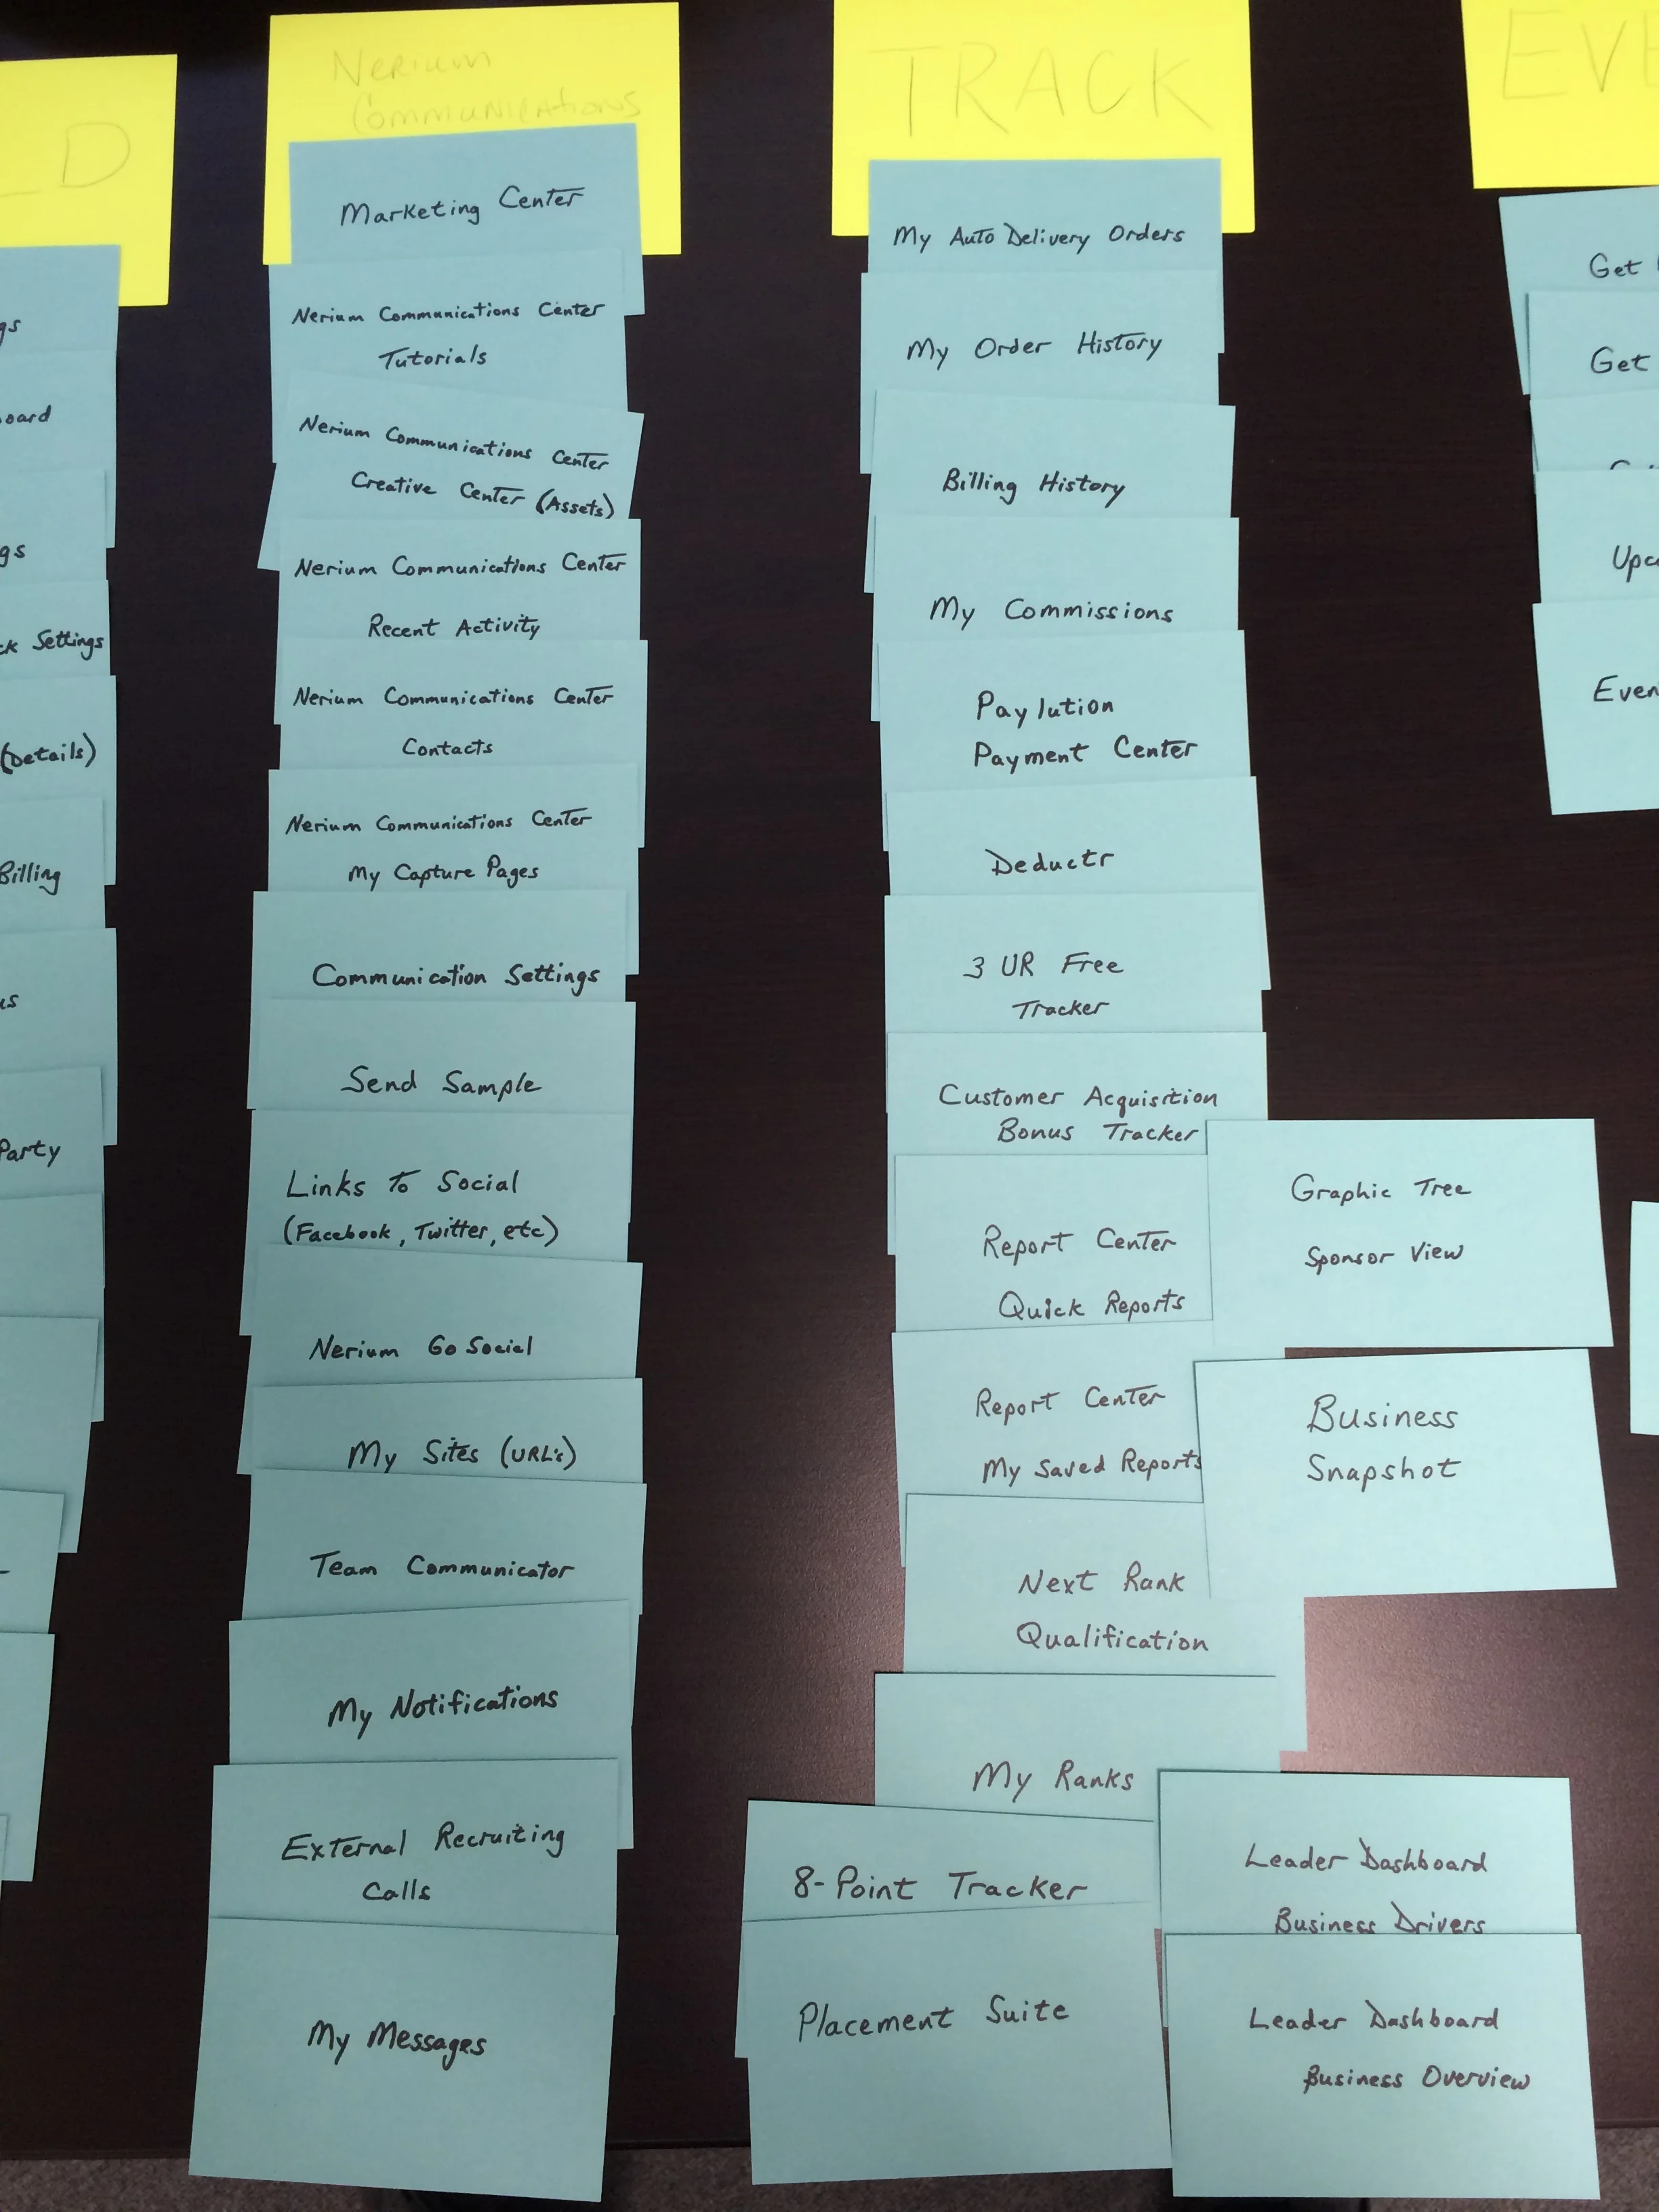 D
gs
oard
gs
ck Settings
(Details)
Billing
us
Party
Nerium
Communications
Marketing Center
Nerium Communications Center
Tutorials
Nerium Communications Center
Creative Center (Assets)
Nerium Communications Center
Recent Activity
Nerium Communications Center
Contacts
Nerium Communications Center
My Capture Pages
Communication Settings
Send Sample
Links To Social
(Facebook, Twitter, etc)
Nerium Go Social
My Sites (URL's)
Team Communicator
My Notifications
External Recruiting
Calls
My Messages
TRACK
My Auto Delivery Orders
My Order History
Billing History
My Commissions
Paylution
Payment Center
Deductr
3 UR Free
Tracker
Customer Acquisition
Bonus Tracker
Report Center
Quick Reports
Report Center
My Saved Reports
Next Rank
Qualification
My Ranks
8-Point Tracker
Placement Suite
Graphic Tree
Sponsor View
Business
Snapshot
Leader Dashboard
Business Drivers
Leader Dashboard
Business Overview
EVE
Get
Get
Upc
Even